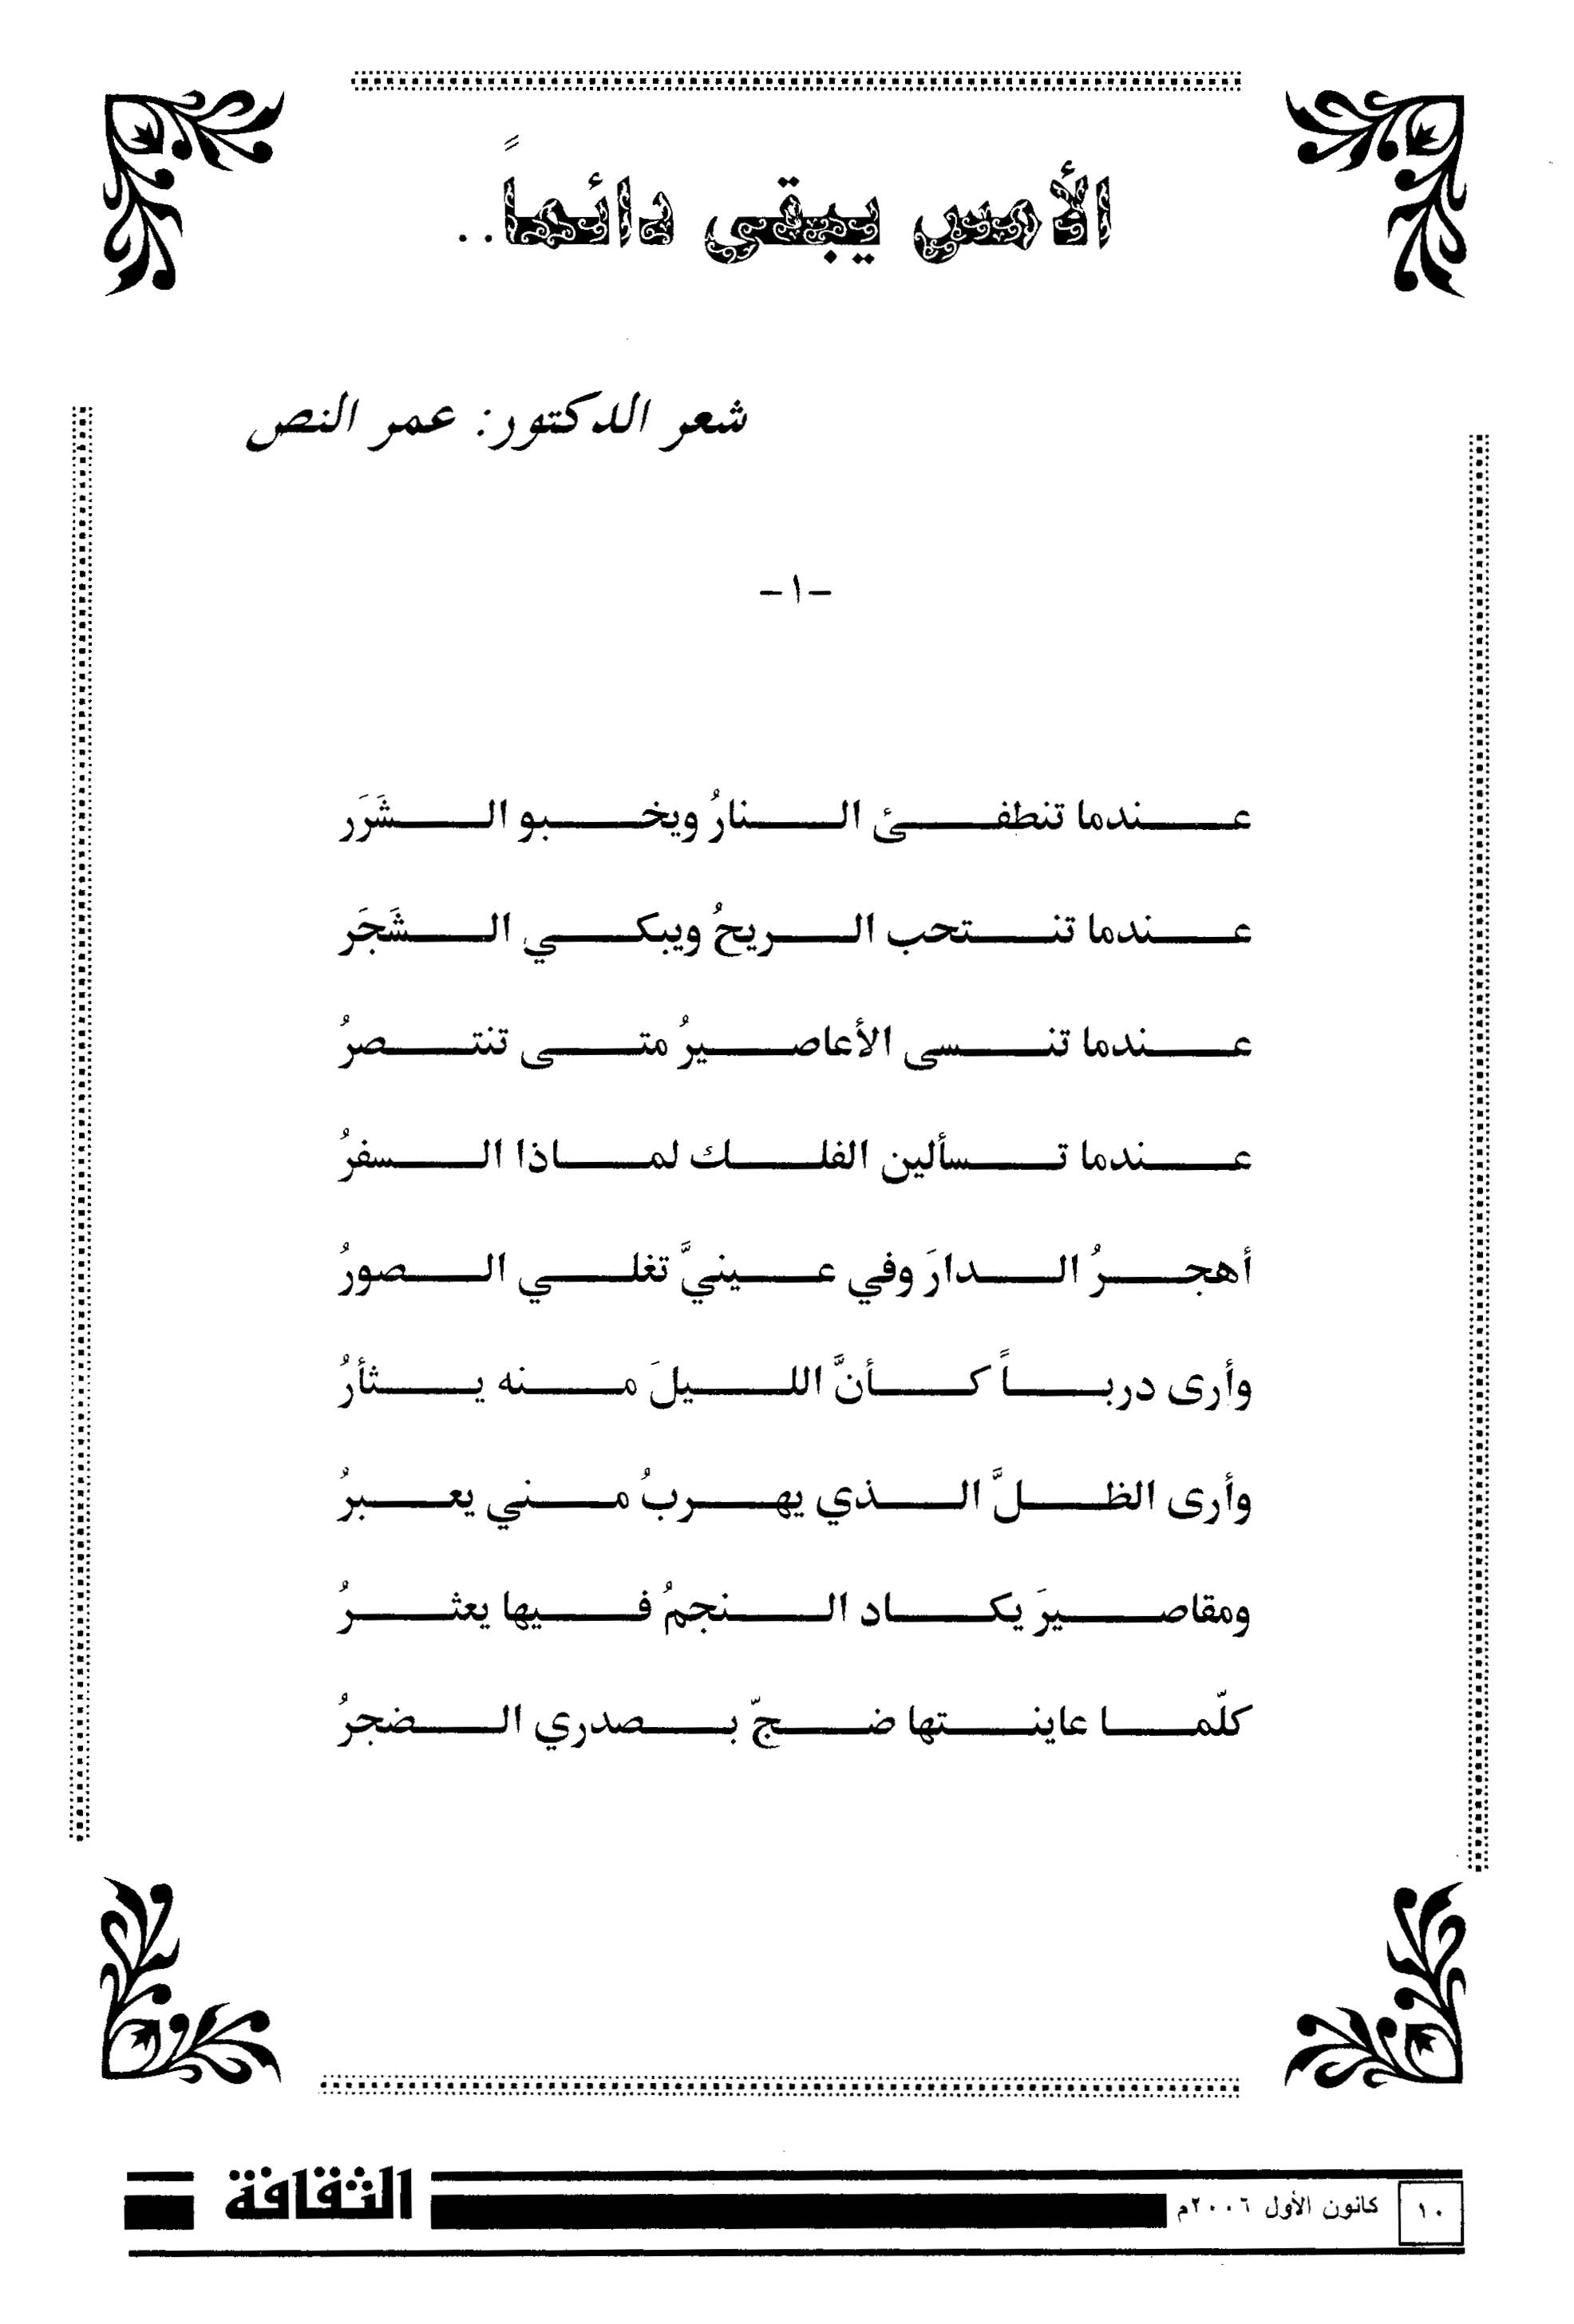 الأمس يبقى دائماً..
شعر الدكتور: عمر النص
-١-
عندما تنطفئ النارُ ويخبو الشَرَر
عندما تنتحب الريحُ ويبكي الشَجَر
عندما تنسى الأعاصيرُ متى تنتصرُ
عندما تسألين الفلك لماذا السفرُ
أهجرُ الدارَ وفي عينيَّ تغلي الصورُ
وأرى درباً كأنَّ الليلَ منه يثأرُ
وأرى الظلَّ الذي يهربُ مني يعبرُ
ومقاصيرَ يكاد النجمُ فيها يعثرُ
كلّما عاينتها ضجّ بصدري الضجرُ
١٠ كانون الأول ٢٠٠٦م الثقافة